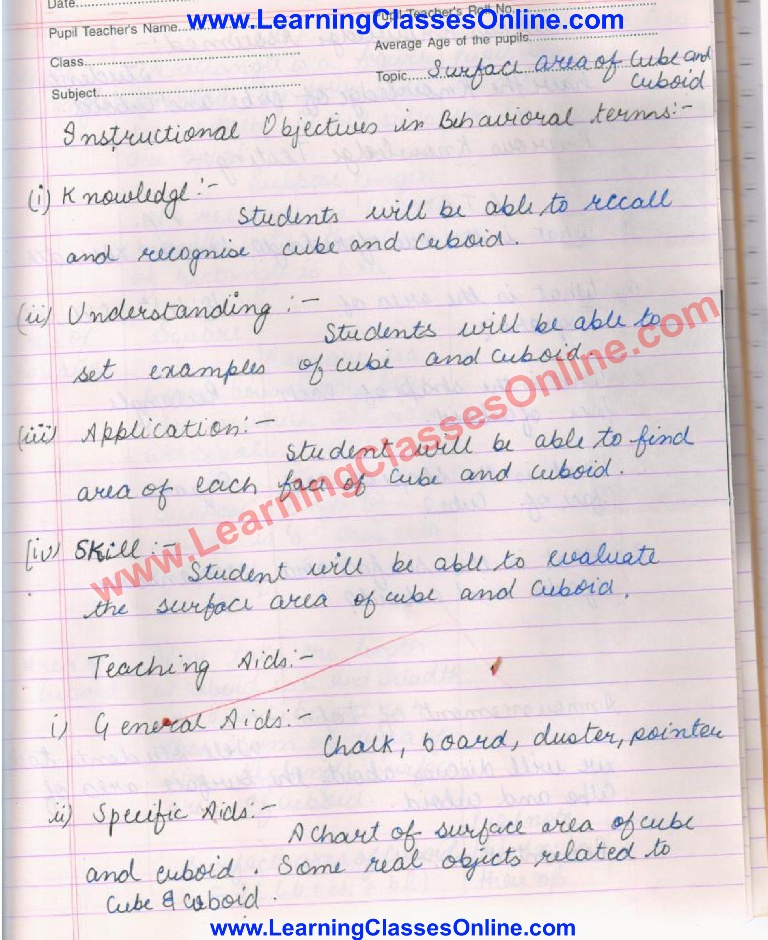 www.LearningClassesOnline.com
Date
Pupil Teacher's Roll No.
Pupil Teacher's Name
Average Age of the pupils
Class
Topic Surface area of cube and cuboid
Subject
Instructional Objectives in Behavioral terms:-
(i) Knowledge:-
Students will be able to recall
and recognise cube and cuboid.
(ii) Understanding:-
Students will be able to
set examples of cube and cuboid.
(iii) Application:-
Student will be able to find
area of each face of cube and cuboid.
(iv) Skill:-
Student will be able to evaluate
the surface area of cube and cuboid.
www.LearningClassesOnline.com
Teaching Aids:-
i) General Aids:-
Chalk, board, duster, pointer
ii) Specific Aids:-
A chart of surface area of cube
and cuboid. Some real objects related to
cube & cuboid.
www.LearningClassesOnline.com